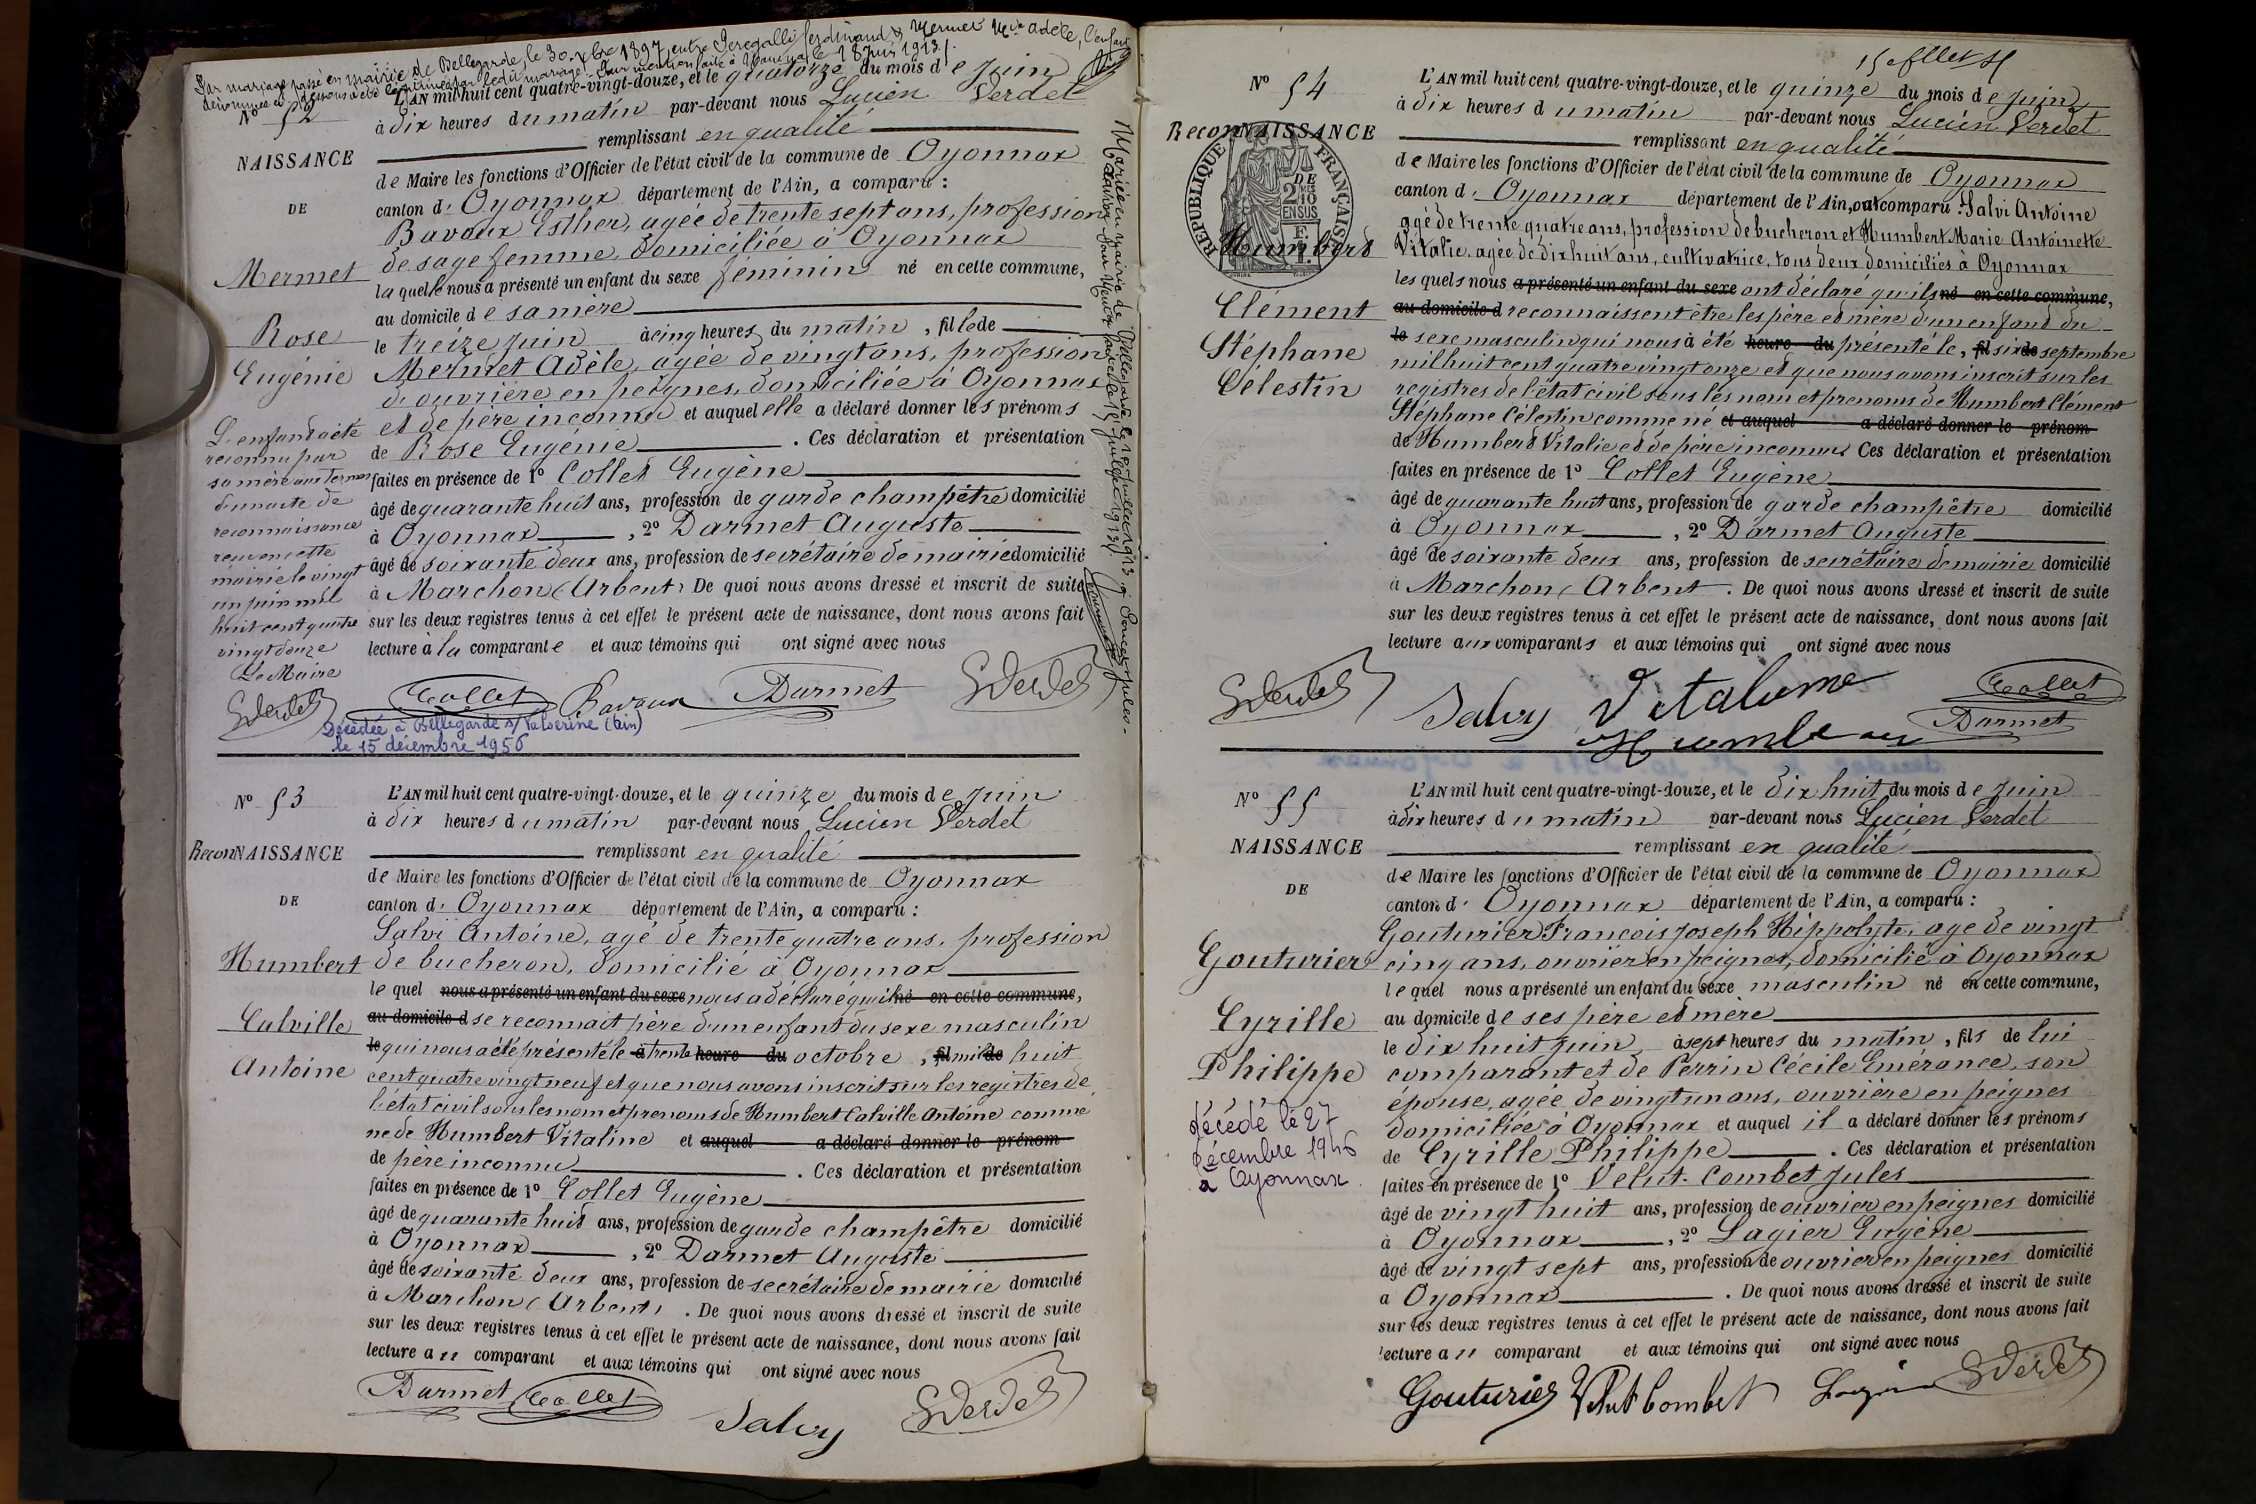 Par mariage passé en mairie de Bellegarde, le 30 xbre 1897, entre Peregalli ferdinand & Mermet Mie adèle, l'enfant
dénommée ci-dessous a été légitimée par le dit mariage.
18 Juin 1913
No 52
NAISSANCE
DE
Mermet
Rose
Eugénie
L'enfant a été
reconnu par
sa mère aux termes
d'un acte de
reconnaissance
reçu en cette
mairie le vingt
un juin mil
huit cent quatre
vingt douze
Le Maire
L'AN mil huit cent quatre-vingt-douze, et le quatorze du mois de Juin
à dix heures du matin par-devant nous Lucien Verdet
remplissant en qualité
de Maire les fonctions d'Officier de l'état civil de la commune de Oyonnax
canton d' Oyonnax département de l'Ain, a comparu :
Bavoux Esther, agée de trente sept ans, profession
de sage femme, domiciliée à Oyonnax
laquelle nous a présenté un enfant du sexe féminin né en cette commune,
au domicile de sa mère
le treize juin à cinq heures du matin, fille de
Mermet Adèle, agée de vingt ans, profession
d'ouvrière en peignes, domiciliée à Oyonnax
et de père inconnu et auquel elle a déclaré donner les prénoms
de Rose Eugénie . Ces déclaration et présentation
faites en présence de 1o Collet Eugène
âgé de quarante huit ans, profession de garde champêtre domicilié
à Oyonnax , 2o Darmet Auguste
âgé de soixante deux ans, profession de secrétaire de mairie domicilié
à Marchon (Arbent) De quoi nous avons dressé et inscrit de suite
sur les deux registres tenus à cet effet le présent acte de naissance, dont nous avons fait
lecture à la comparante et aux témoins qui ont signé avec nous
Verdet Collet Bavoux Darmet Verdet
Décédée à Bellegarde s/ Valserine (Ain)
le 15 décembre 1956
Mariée en mairie de Bellegarde le
No 53
ReconNAISSANCE
DE
Humbert
Calville
Antoine
L'AN mil huit cent quatre-vingt-douze, et le quinze du mois de Juin
à dix heures du matin par-devant nous Lucien Verdet
remplissant en qualité
de Maire les fonctions d'Officier de l'état civil de la commune de Oyonnax
canton d' Oyonnax département de l'Ain, a comparu :
Salvi Antoine, agé de trente quatre ans, profession
de bucheron, domicilié à Oyonnax
lequel nous a présenté un enfant du sexe nous a déclaré qu'il né en cette commune,
au domicile d se reconnait père d'un enfant du sexe masculin
le qui nous a été présenté le à trente heure du octobre , fil mil de huit
cent quatre vingt neuf et que nous avons inscrit sur les registres de
l'état civil sous les nom et prenoms de Humbert Calville Antoine comme
né de Humbert Vitaline et auquel a déclaré donner le prénom
de père inconnu . Ces déclaration et présentation
faites en présence de 1o Collet Eugène
âgé de quarante huit ans, profession de garde champêtre domicilié
à Oyonnax , 2o Darmet Auguste
âgé de soixante deux ans, profession de secrétaire de mairie domicilié
à Marchon (Arbent) . De quoi nous avons dressé et inscrit de suite
sur les deux registres tenus à cet effet le présent acte de naissance, dont nous avons fait
lecture au comparant et aux témoins qui ont signé avec nous
Darmet Collet Salvy Verdet
No 54
ReconNAISSANCE
REPUBLIQUE FRANÇAISE
Humbert
Clément
Stéphane
Célestin
L'AN mil huit cent quatre-vingt-douze, et le quinze du mois de Juin
à dix heures du matin par-devant nous Lucien Verdet
remplissant en qualité
de Maire les fonctions d'Officier de l'état civil de la commune de Oyonnax
canton d' Oyonnax département de l'Ain, ont comparu : Salvi Antoine
agé de trente quatre ans, profession de bucheron et Humbert Marie Antoinette
Vitalie, agée de dix huit ans, cultivatrice, tous deux domiciliés à Oyonnax
lesquels nous a présenté un enfant du sexe ont déclaré qu'ils né en cette commune,
au domicile d reconnaissent être les père et mère d'un enfant du
le sexe masculin qui nous à été heure du présenté le, fil six de septembre
mil huit cent quatre vingt onze et que nous avons inscrit sur les
registres de l'état civil sous les nom et prenoms de Humbert Clément
Stéphane Célestin comme né et auquel a déclaré donner le prénom
de Humbert Vitalie et de père inconnu Ces déclaration et présentation
faites en présence de 1o Collet Eugène
âgé de quarante huit ans, profession de garde champêtre domicilié
à Oyonnax , 2o Darmet Auguste
âgé de soixante deux ans, profession de secrétaire de mairie domicilié
à Marchon (Arbent . De quoi nous avons dressé et inscrit de suite
sur les deux registres tenus à cet effet le présent acte de naissance, dont nous avons fait
lecture aux comparants et aux témoins qui ont signé avec nous
Verdet Salvy Collet
Darmet
No 55
NAISSANCE
DE
Gouturier
Cyrille
Philippe
décédé le 27
décembre 1946
à Oyonnax
L'AN mil huit cent quatre-vingt-douze, et le dix huit du mois de Juin
à dix heures du matin par-devant nous Lucien Verdet
remplissant en qualité
de Maire les fonctions d'Officier de l'état civil de la commune de Oyonnax
canton d' Oyonnax département de l'Ain, a comparu :
Gouturier François Joseph Hippolyte, age de vingt
cinq ans, ouvrier en peignes, domicilié à Oyonnax
lequel nous a présenté un enfant du sexe masculin né en cette commune,
au domicile de ses père et mère
le dix huit Juin à sept heures du matin, fils de lui
comparant et de Perrin Cécile Emérance, son
épouse, agée de vingt un ans, ouvrière en peignes
domiciliée à Oyonnax et auquel il a déclaré donner les prénoms
de Cyrille Philippe . Ces déclaration et présentation
faites en présence de 1o Velut-Combet Jules
âgé de vingt huit ans, profession de ouvrier en peignes domicilié
à Oyonnax , 2o Lagier Eugène
âgé de vingt sept ans, profession de ouvrier en peignes domicilié
a Oyonnax . De quoi nous avons dressé et inscrit de suite
sur les deux registres tenus à cet effet le présent acte de naissance, dont nous avons fait
lecture au comparant et aux témoins qui ont signé avec nous
Gouturier Velut Combet Verdet